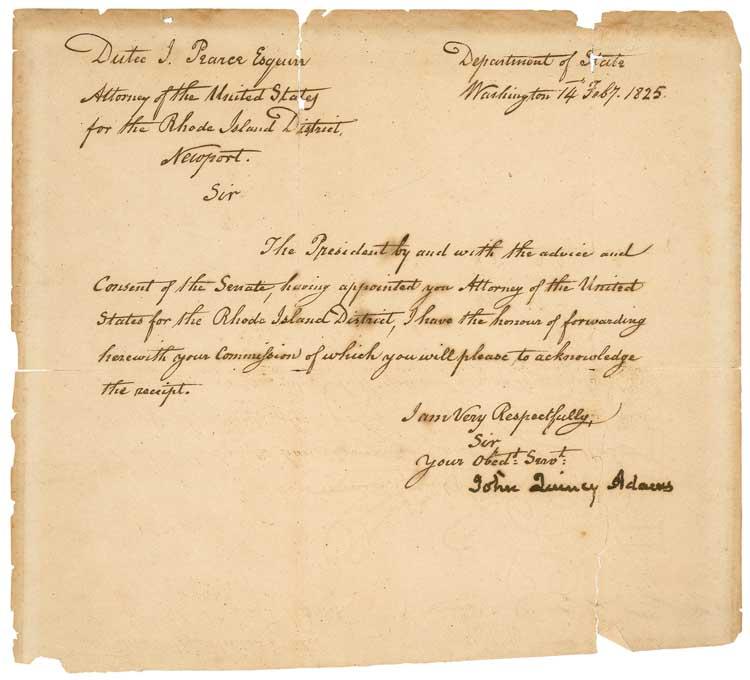 Dutee J. Pearce Esquire
Attorney of the United States
for the Rhode Island District,
Newport.
Sir
Department of State
Washington 14th Feby. 1825.
The President by and with the advice and
Consent of the Senate, having appointed you Attorney of the United
States for the Rhode Island District, I have the honour of forwarding
herewith your Commission of which you will please to acknowledge
the receipt.
I am Very Respectfully,
Sir
Your Obedt. Servt.
John Quincy Adams